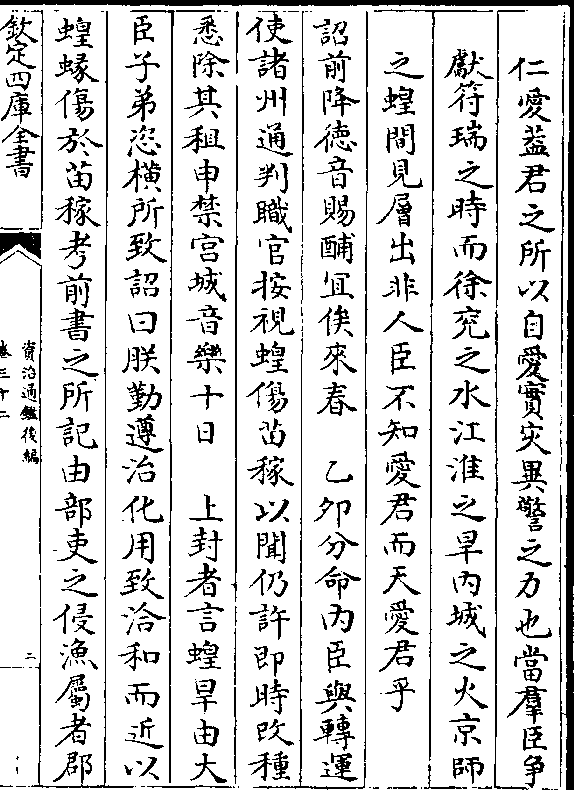 仁愛葢君之所以自愛實灾異警之力也當羣臣争
獻符瑞之時而徐兖之水江淮之旱内城之火京師
之蝗間見層出非人臣不知愛君而天愛君乎
詔前降徳音賜酺宜俟來春　乙夘分命内臣與轉運
使諸州通判職官按視蝗傷苗稼以聞仍許即時改種
悉除其租申禁宫城音樂十日　上封者言蝗旱由大
臣子弟恣横所致詔曰朕勤遵治化用致洽和而近以
蝗蝝傷於苗稼考前書之所記由部吏之侵漁屬者郡
欽定四庫全書
資治通鑑後編
卷三十二
三